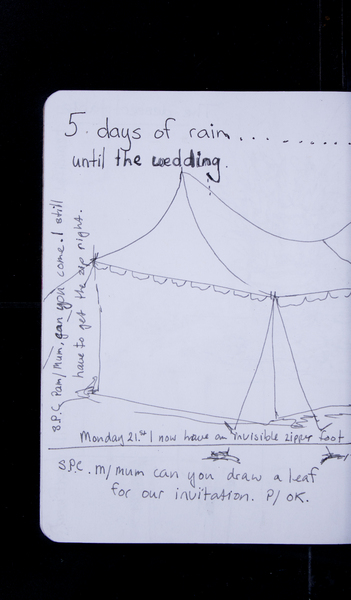 5. days of rain... ......
until the wedding.
8P.C. Pam/Mum. can you come. I still
have to get the zip right.
Monday 21.st I now have an invisible zipper foot
5P.C. M/mum can you draw a leaf
for our invitation. P/ OK.